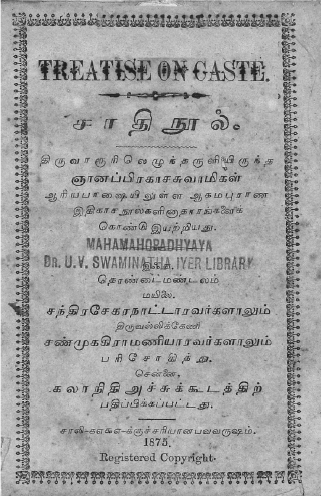 TREATISE ON CASTE.
சாதிநூல்.
திருவாரூரிலெழுந்தருளியிருந்த
ஞானப்பிரகாசசுவாமிகள்
ஆரியபாஷையிலுள்ள ஆகமபுராண
இதிகாசநூல்களினாதாரங்களைக்
கொண்டு இயற்றியது.
MAHAMAHOPADHYAYA
DR. U.V. SWAMINATHA IYER LIBRARY
இஃது
தொண்டைமண்டலம்
மயிலை.
சந்திரசேகரநாட்டாரவர்களாலும்
திருவல்லிக்கேணி
சண்முககிராமணியாரவர்களாலும்
பரிசோதித்து,
சென்னை,
கலாநிதி அச்சுக்கூடத்திற்
பதிப்பிக்கப்பட்டது.
1875.
Registered Copyright.